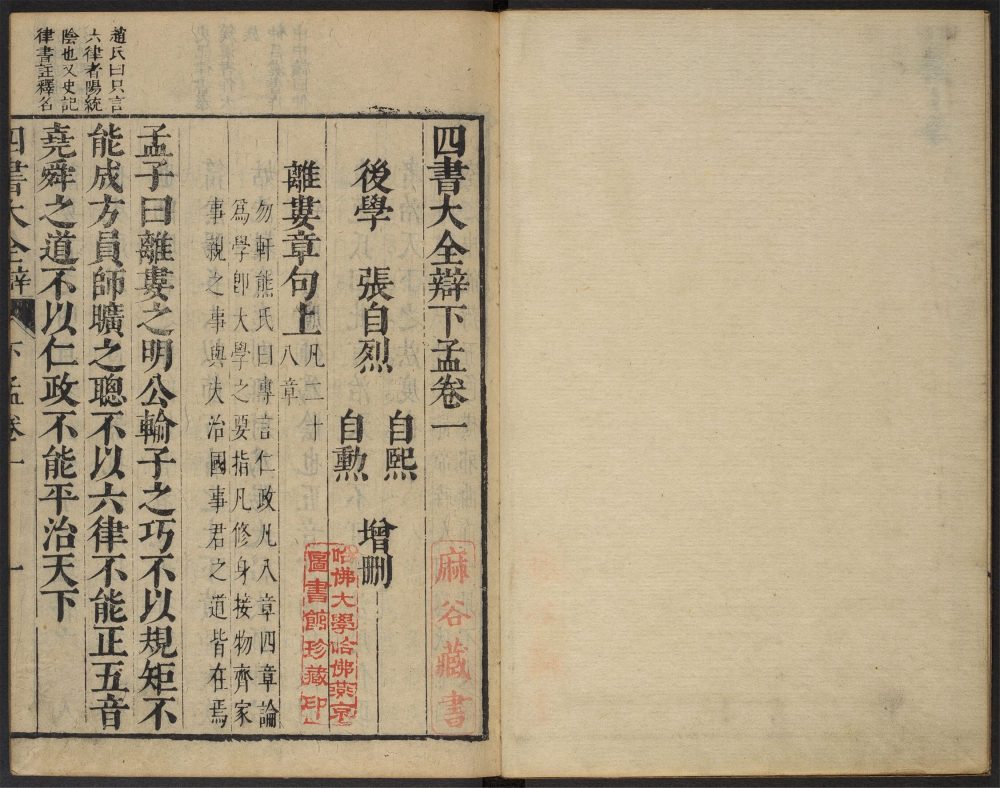 四書大全辯下孟卷一
後學 張自烈 自熙 自勲 增刪
離婁章句上 凡二十八章
勿軒熊氏曰專言仁政凡八章四章論
為學卽大學之要指凡修身接物齊家
事親之事與夫治國事君之道皆在焉
孟子曰離婁之明公輸子之巧不以規矩不
能成方員師曠之聰不以六律不能正五音
堯舜之道不以仁政不能平治天下
趙氏曰只言
六律者陽統
陰也又史記
律書註釋名
四書大全辯 下孟卷一 一
麻谷藏書
哈佛大學哈佛燕京
圖書館珍藏印